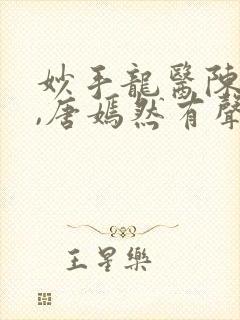 妙手龍醫陳
,唐嫣然有聲
王星樂